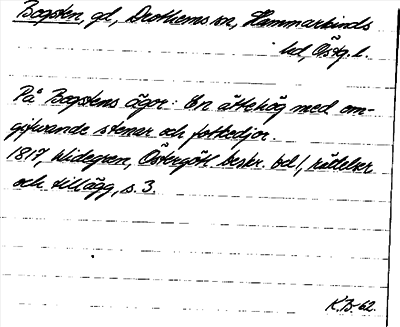 Bogsten, gd, Drothems sn, Hammarkinds
hd, Östg. l.
På Bogstens ägor: En ättehög med om-
gifvande stenar och fotkedjor.
1817, Widegren, Östergötl. beskr. bd 1, rättelser
och tillägg, s. 3.
K.B. 62.